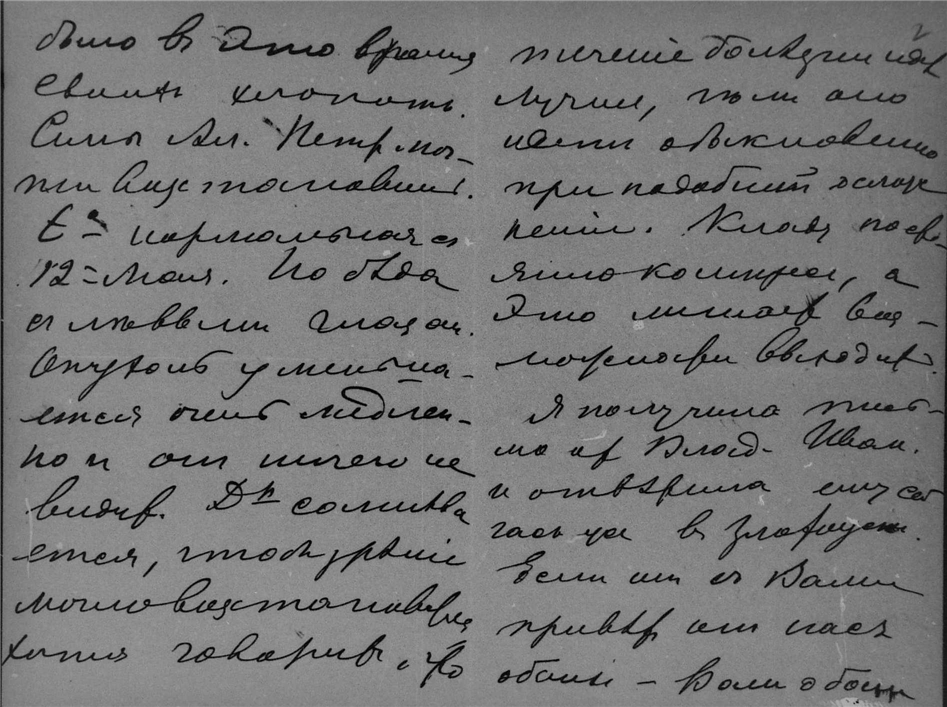 было въ это время
своихъ хлопотъ.
Силы Ал. Петр. поч-
ти возстановились.
t° нормальная съ
12-Мая. Но бѣда
съ лѣвымъ глазомъ.
Опухоль уменьша-
ется очень медлен-
но и онъ ничего не
видитъ. Дръ сомнѣва
ется, чтобы зрѣніе
могло возстановиться
хотя говоритъ, что
теченіе болѣзни идетъ
лучше, чѣмъ оно
идетъ обыкновенно
при подобныхъ ослож
неніи. Кладу
компрес, а
это лишаетъ воз-
можности выходить.
Я получила пись-
мо отъ Влад. Иван.
и отвѣтила ему сей
часъ же въ Златоустъ.
Если онъ съ Вами
привѣтъ отъ насъ
обоихъ – Вамъ обоимъ